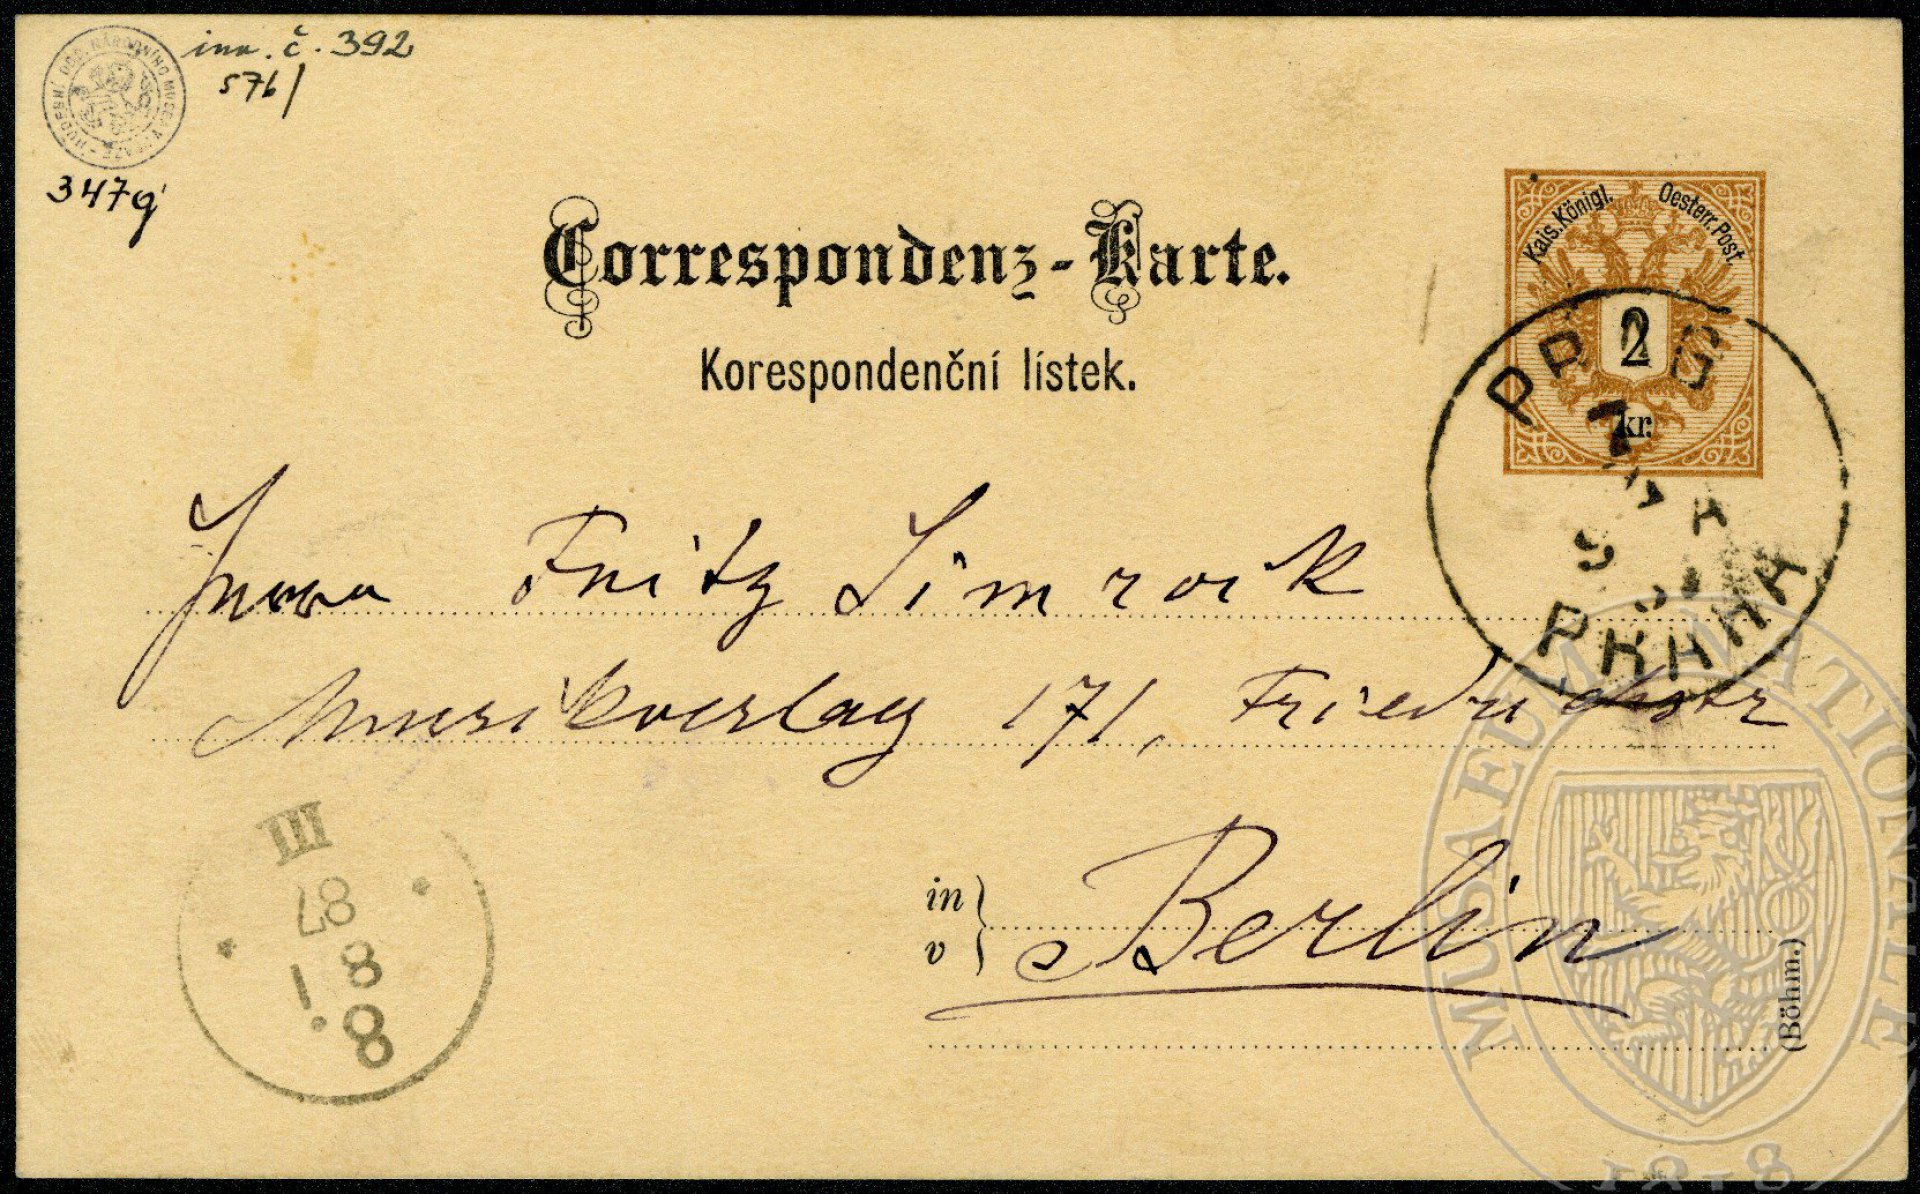 inv. č. 392
576/
HUDEBNÍ ODD. NÁRODNÍHO MUSEA V PRAZE
347g
Correspondenz-Karte.
Korespondenční lístek.
Kais. Königl. Oesterr. Post.
2
kr.
PRAG
7
PRAHA
Herrn Fritz Simrock
Musikverlag 171, Friedrichstr
in
v
Berlin
(Böhm.)
III
87
8
8
MUSAEUM NATIONALE
1818